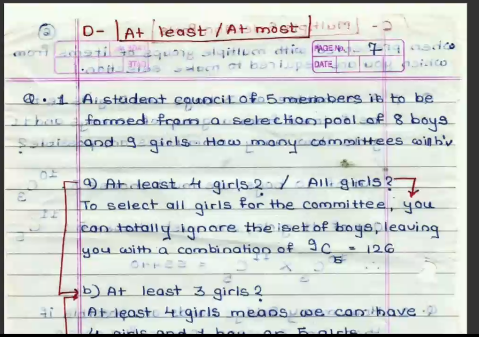 D- At least / At most
PAGE No. 7
DATE
Q. 1 A student council of 5 members is to be
formed from a selection pool of 8 boys
and 9 girls. How many committees with
a) At least 4 girls? / All girls?
To select all girls for the committee, you
can totally ignore the set of boys, leaving
you with a combination of ⁹C₅ = 126
b) At least 3 girls?
At least 4 girls means we can have
4 girls and 1 boy or 5 girls